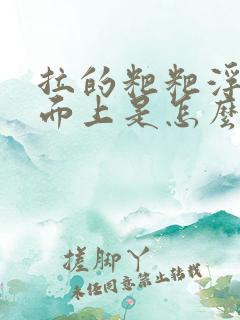 拉的粑粑浮
而上是怎麼
搓脚丫
未经同意禁止转载